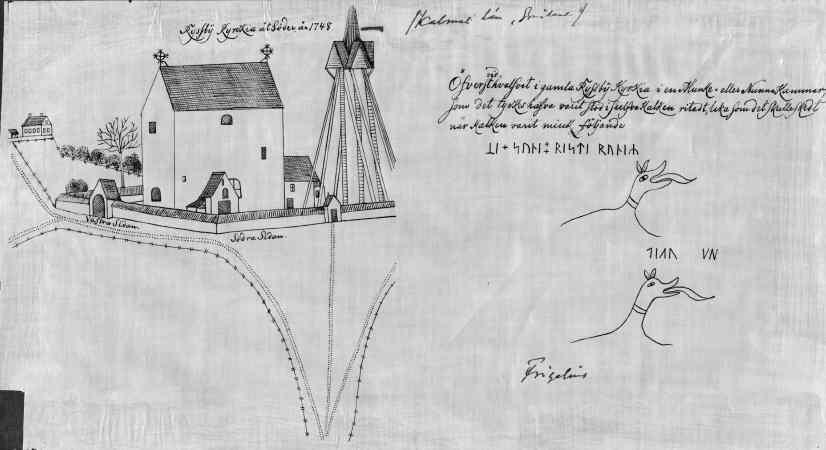 Ryssby Kyrckia åt Söder år 1748
Kalmar län, Småland
Öfverst hvalfvet i gamla Ryssby Kyrckia i en Munke- eller Nunne Kammar,
som det tyckes hafva varit stod i sielfva Kalken ritadt, lika som det skulle skedt
när Kalken varit miuk, följande
ᚱᛁᛋᛏᛁ ᚱᚢᚾᛁᛦ
Västra Sidan.
Södra Sidan.
Frigelius